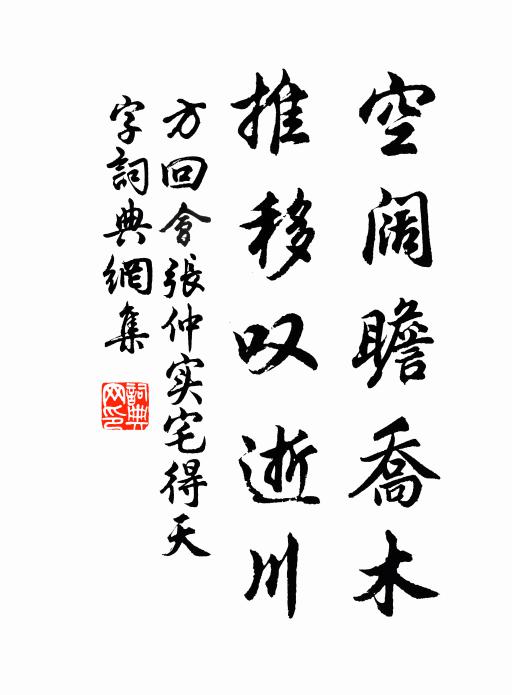 空阔瞻喬木
推移叹逝川
方回會張仲实宅得天
字詞典網集
詞典网印